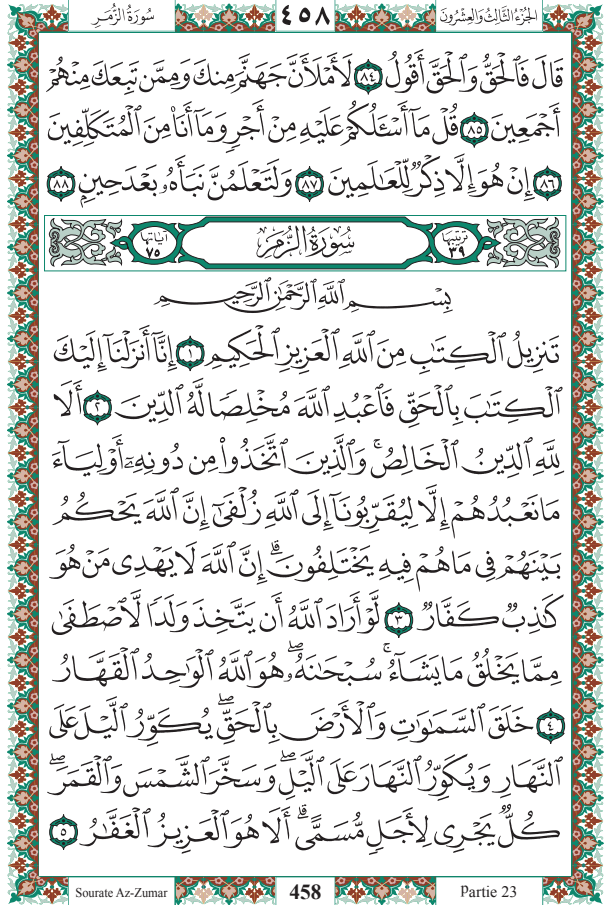 سُورَةُ الزُّمَرِ ٤٥٨ الجُزْءُ الثَّالِثُ وَالعِشْرُونَ
قَالَ فَٱلْحَقُّ وَٱلْحَقَّ أَقُولُ ٨٤ لَأَمْلَأَنَّ جَهَنَّمَ مِنكَ وَمِمَّن تَبِعَكَ مِنْهُمْ
أَجْمَعِينَ ٨٥ قُلْ مَآ أَسْـَٔلُكُمْ عَلَيْهِ مِنْ أَجْرٍ وَمَآ أَنَا۠ مِنَ ٱلْمُتَكَلِّفِينَ
٨٦ إِنْ هُوَ إِلَّا ذِكْرٌ لِّلْعَٰلَمِينَ ٨٧ وَلَتَعْلَمُنَّ نَبَأَهُۥ بَعْدَ حِينٍۭ ٨٨
ترتيبها ٣٩ سُورَةُ الزُّمَرِ آياتها ٧٥
بِسْمِ ٱللَّهِ ٱلرَّحْمَٰنِ ٱلرَّحِيمِ
تَنزِيلُ ٱلْكِتَٰبِ مِنَ ٱللَّهِ ٱلْعَزِيزِ ٱلْحَكِيمِ ١ إِنَّآ أَنزَلْنَآ إِلَيْكَ
ٱلْكِتَٰبَ بِٱلْحَقِّ فَٱعْبُدِ ٱللَّهَ مُخْلِصًا لَّهُ ٱلدِّينَ ٢ أَلَا
لِلَّهِ ٱلدِّينُ ٱلْخَالِصُ ۚ وَٱلَّذِينَ ٱتَّخَذُوا۟ مِن دُونِهِۦٓ أَوْلِيَآءَ
مَا نَعْبُدُهُمْ إِلَّا لِيُقَرِّبُونَآ إِلَى ٱللَّهِ زُلْفَىٰٓ إِنَّ ٱللَّهَ يَحْكُمُ
بَيْنَهُمْ فِى مَا هُمْ فِيهِ يَخْتَلِفُونَ ۗ إِنَّ ٱللَّهَ لَا يَهْدِى مَنْ هُوَ
كَٰذِبٌ كَفَّارٌ ٣ لَّوْ أَرَادَ ٱللَّهُ أَن يَتَّخِذَ وَلَدًا لَّٱصْطَفَىٰ
مِمَّا يَخْلُقُ مَا يَشَآءُ ۚ سُبْحَٰنَهُۥ ۖ هُوَ ٱللَّهُ ٱلْوَٰحِدُ ٱلْقَهَّارُ
٤ خَلَقَ ٱلسَّمَٰوَٰتِ وَٱلْأَرْضَ بِٱلْحَقِّ ۖ يُكَوِّرُ ٱلَّيْلَ عَلَى
ٱلنَّهَارِ وَيُكَوِّرُ ٱلنَّهَارَ عَلَى ٱلَّيْلِ ۖ وَسَخَّرَ ٱلشَّمْسَ وَٱلْقَمَرَ ۖ
كُلٌّ يَجْرِى لِأَجَلٍ مُّسَمًّى ۗ أَلَا هُوَ ٱلْعَزِيزُ ٱلْغَفَّٰرُ ٥
Sourate Az-Zumar 458 Partie 23